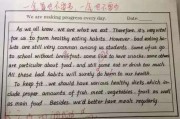 We are making progress every day. Date
As we all know, we are what we eat. Therefore, it's very vital
for us to form healthy eating habits. However, bad eating ha-
bits are still very common among us students. Some of us go
to school without breakfast; some eat too much snacks; some others
are particular about food, and still some eat or drink too much.
All these bad habits will surely do harm to our health.
To keep fit, we should have various healthy diets, which in-
clude proper amounts of fish, meat, vegetables, fruit as well
as main food. Besides, we'd better have meals regularly.